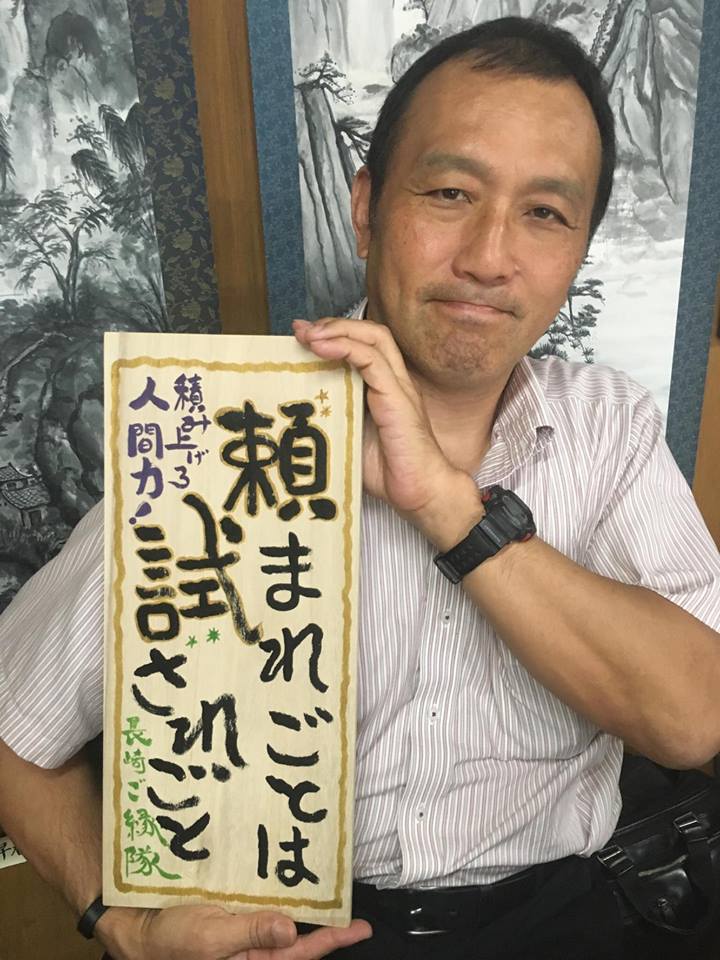 頼まれごとは
試されごと
積み上げろ
人間力!
長崎ご縁隊